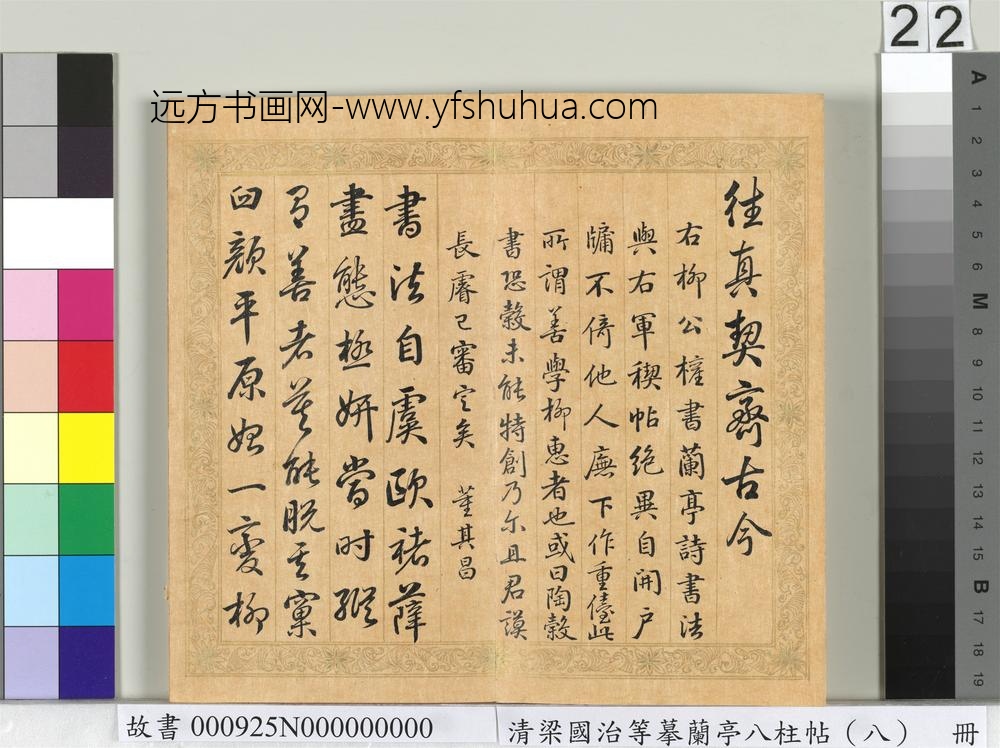 22
远方书画网-www.yfshuhua.com
往真契齋古今
右柳公權書蘭亭詩書法
與右軍稧帖絶異自開戶
牖不倚他人廡下作重儓此
所謂善學柳惠者也或曰陶穀
書恐穀未能特創乃尓且君謨
長睿已審定矣 董其昌
書法自虞歐褚薛
盡態極妍當时縱
有善者莫能脱其窠
臼顔平原始一變柳
A 1 2 3 4 5 6 M 8 9 10 11 12 13 14 15 B 17 18 19
故書 000925N000000000
清梁國治等摹蘭亭八柱帖（八） 冊